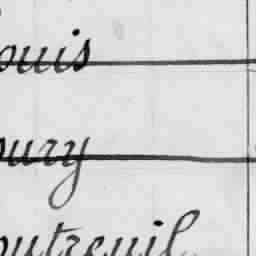 ouis
oury
outreuil